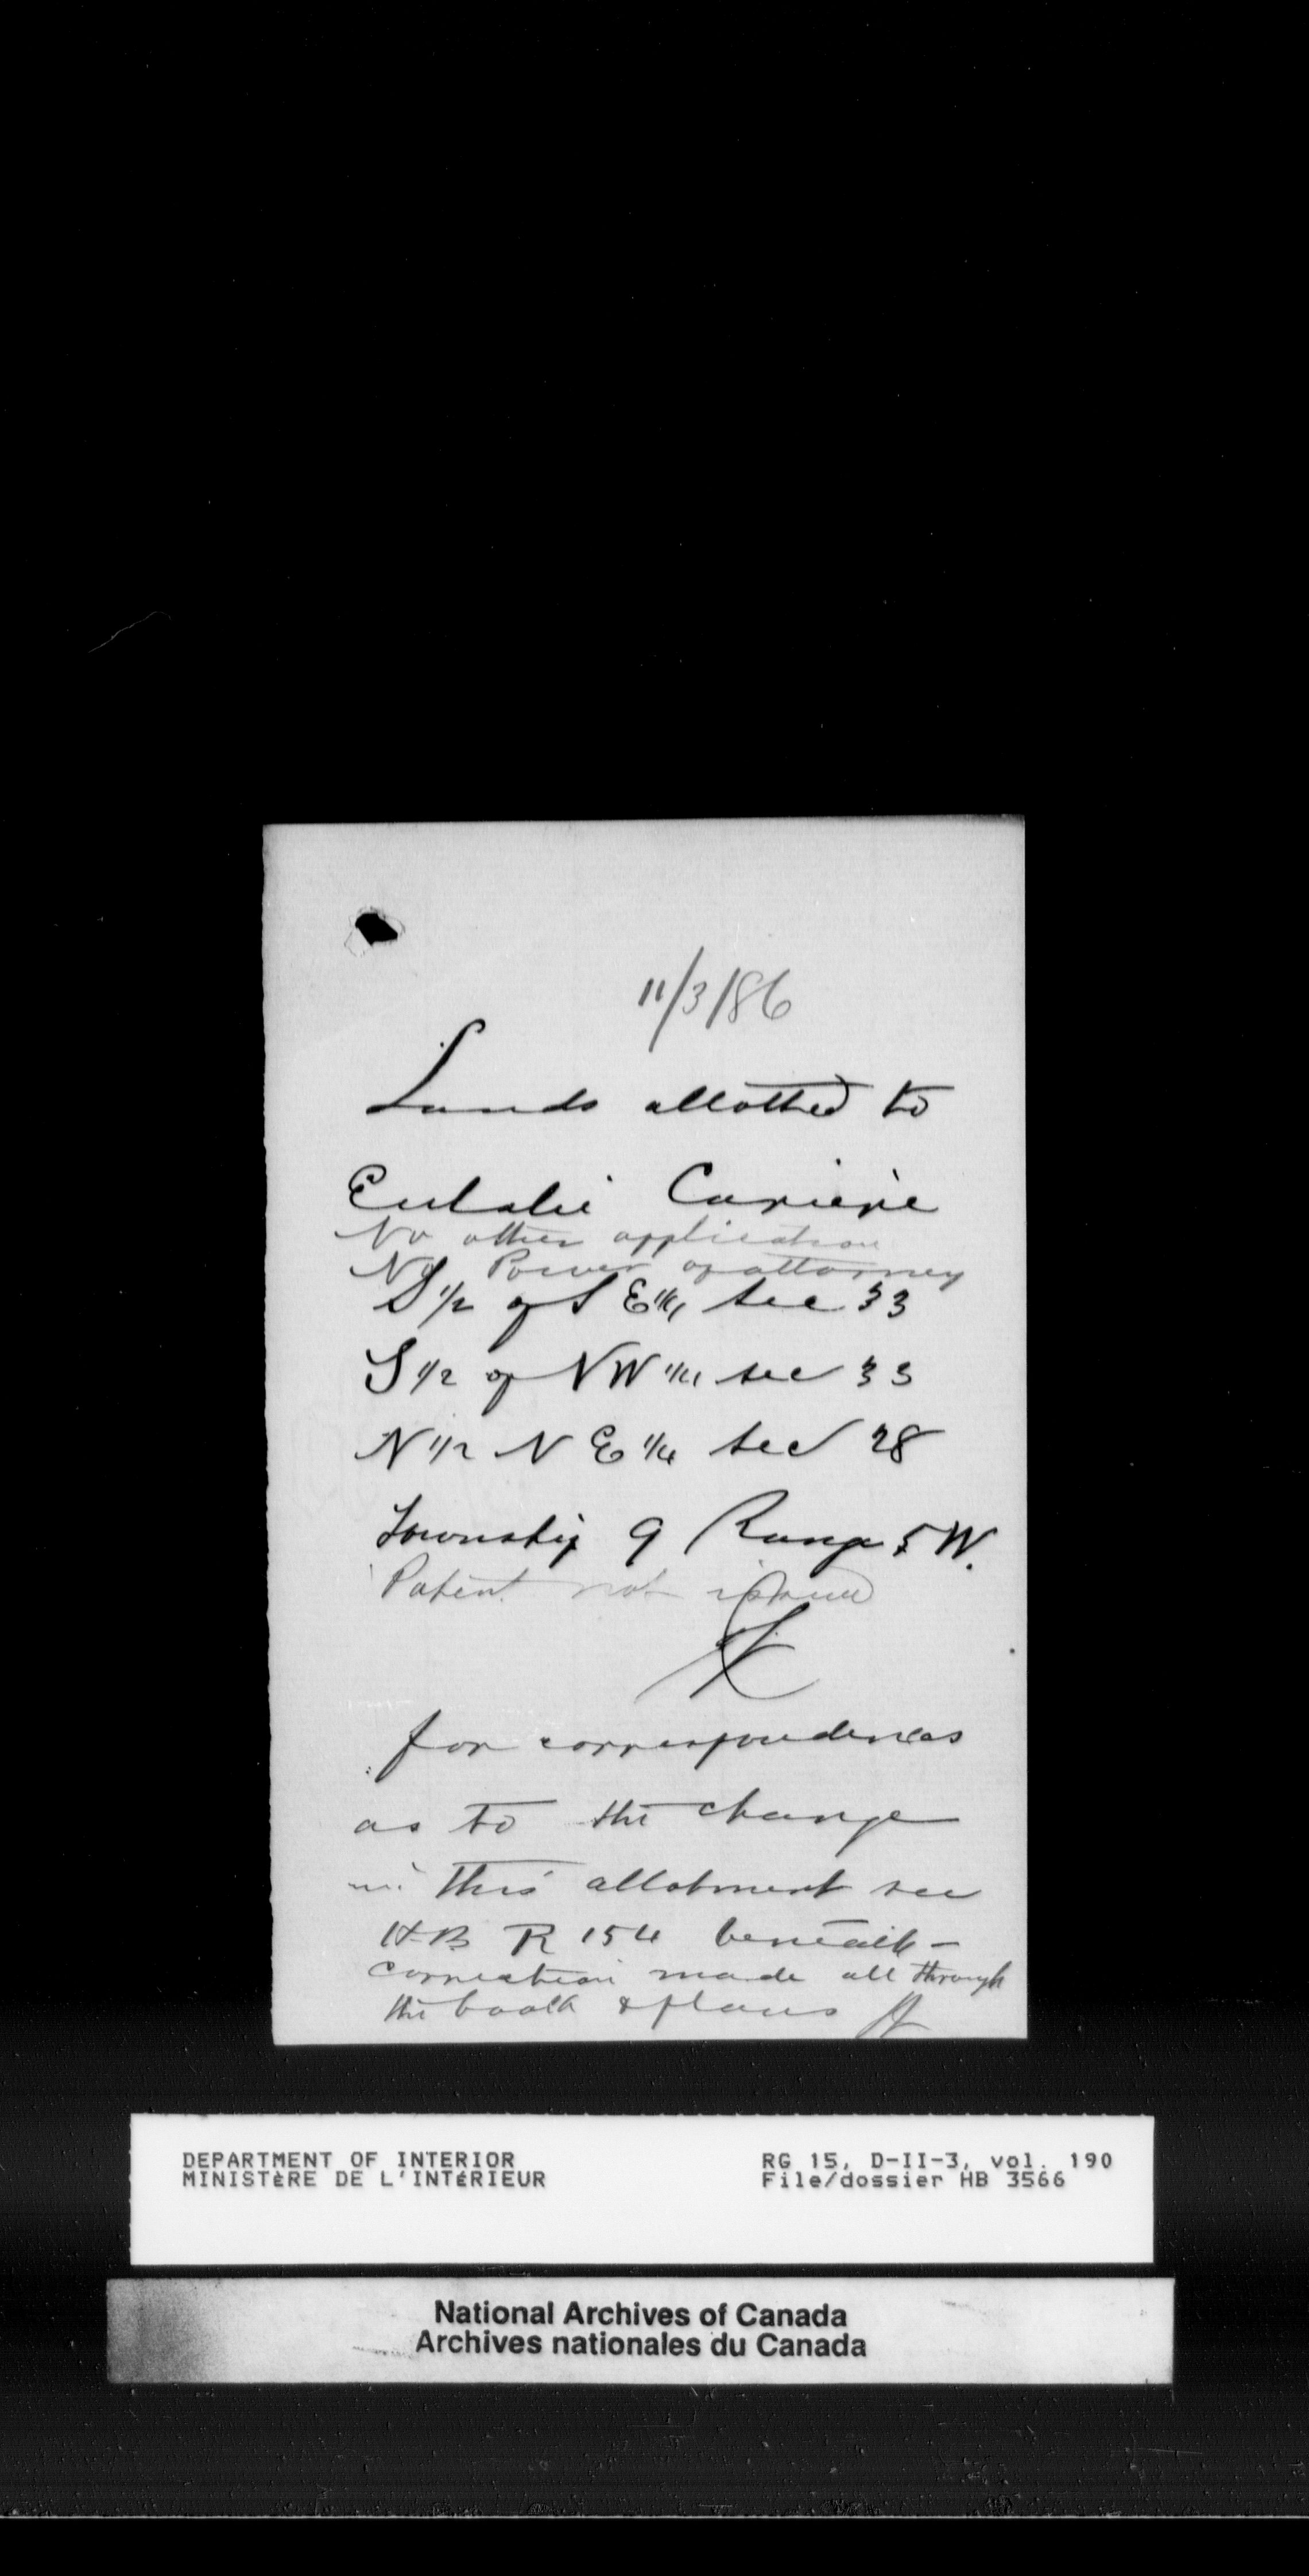 11/3/86
Lands allotted to
Eulalie Carière
No other application
No Power of attorney
S 1/2 of S E 1/4 sec 33
S 1/2 of N W 1/4 sec 33
N 1/2 N E 1/4 sec 28
Township 9 Range 5 W.
Patent not issued
for correspondences
as to the change
in this allotment see
H B R 154 beneath -
correction made all through
the book & plans
DEPARTMENT OF INTERIOR
MINISTÈRE DE L'INTÉRIEUR
RG 15, D-II-3, vol. 190
File/dossier HB 3566
National Archives of Canada
Archives nationales du Canada